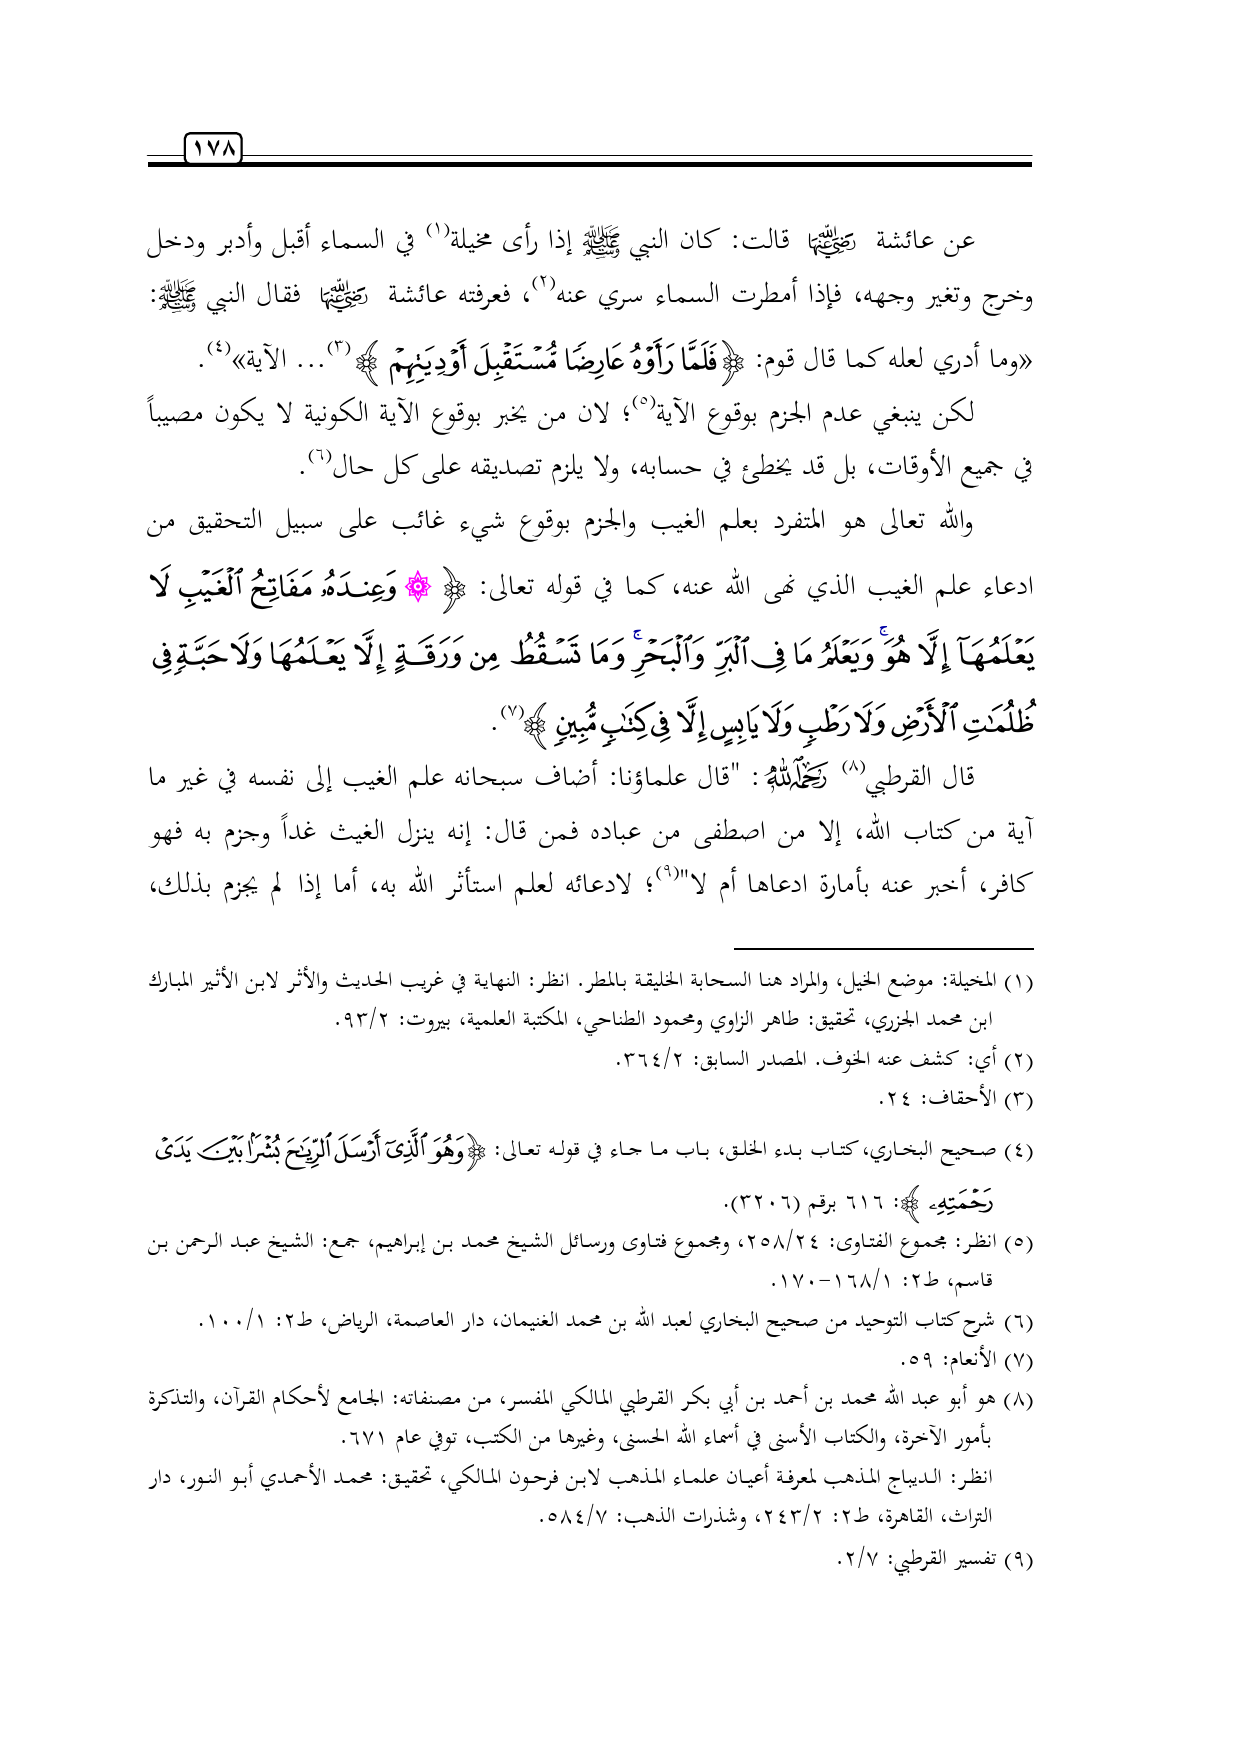 ١٧٨
عن عائشة رضي الله عنها قالت: كان النبي ﷺ إذا رأى مخيلة(١) في السماء أقبل وأدبر ودخل
وخرج وتغير وجهه، فإذا أمطرت السماء سري عنه(٢)، فعرفته عائشة رضي الله عنها فقال النبي ﷺ:
«وما أدري لعله كما قال قوم: ﴿فَلَمَّا رَأَوْهُ عَارِضًا مُّسْتَقْبِلَ أَوْدِيَتِهِمْ﴾(٣)... الآية»(٤).
لكن ينبغي عدم الجزم بوقوع الآية(٥)؛ لان من يخبر بوقوع الآية الكونية لا يكون مصيباً
في جميع الأوقات، بل قد يخطئ في حسابه، ولا يلزم تصديقه على كل حال(٦).
والله تعالى هو المتفرد بعلم الغيب والجزم بوقوع شيء غائب على سبيل التحقيق من
ادعاء علم الغيب الذي نهى الله عنه، كما في قوله تعالى: ﴿۞ وَعِندَهُۥ مَفَاتِحُ ٱلْغَيْبِ لَا
يَعْلَمُهَآ إِلَّا هُوَۚ وَيَعْلَمُ مَا فِى ٱلْبَرِّ وَٱلْبَحْرِۚ وَمَا تَسْقُطُ مِن وَرَقَةٍ إِلَّا يَعْلَمُهَا وَلَا حَبَّةٍ فِى
ظُلُمَٰتِ ٱلْأَرْضِ وَلَا رَطْبٍ وَلَا يَابِسٍ إِلَّا فِى كِتَٰبٍ مُّبِينٍ﴾(٧).
قال القرطبي(٨) رحمه الله: "قال علماؤنا: أضاف سبحانه علم الغيب إلى نفسه في غير ما
آية من كتاب الله، إلا من اصطفى من عباده فمن قال: إنه ينزل الغيث غداً وجزم به فهو
كافر، أخبر عنه بأمارة ادعاها أم لا"(٩)؛ لادعائه لعلم استأثر الله به، أما إذا لم يجزم بذلك،
(١) المخيلة: موضع الخيل، والمراد هنا السحابة الخليقة بالمطر. انظر: النهاية في غريب الحديث والأثر لابن الأثير المبارك
ابن محمد الجزري، تحقيق: طاهر الزاوي ومحمود الطناحي، المكتبة العلمية، بيروت: ٩٣/٢.
(٢) أي: كشف عنه الخوف. المصدر السابق: ٣٦٤/٢.
(٣) الأحقاف: ٢٤.
(٤) صحيح البخاري، كتاب بدء الخلق، باب ما جاء في قوله تعالى: ﴿وَهُوَ ٱلَّذِىٓ أَرْسَلَ ٱلرِّيَٰحَ بُشْرًۢا بَيْنَ يَدَىْ
رَحْمَتِهِۦ﴾: ٦١٦ برقم (٣٢٠٦).
(٥) انظر: مجموع الفتاوى: ٢٥٨/٢٤، ومجموع فتاوى ورسائل الشيخ محمد بن إبراهيم، جمع: الشيخ عبد الرحمن بن
قاسم، ط٢: ١٦٨/١-١٧٠.
(٦) شرح كتاب التوحيد من صحيح البخاري لعبد الله بن محمد الغنيمان، دار العاصمة، الرياض، ط٢: ١٠٠/١.
(٧) الأنعام: ٥٩.
(٨) هو أبو عبد الله محمد بن أحمد بن أبي بكر القرطبي المالكي المفسر، من مصنفاته: الجامع لأحكام القرآن، والتذكرة
بأمور الآخرة، والكتاب الأسنى في أسماء الله الحسنى، وغيرها من الكتب، توفي عام ٦٧١.
انظر: الديباج المذهب لمعرفة أعيان علماء المذهب لابن فرحون المالكي، تحقيق: محمد الأحمدي أبو النور، دار
التراث، القاهرة، ط٢: ٢٤٣/٢، وشذرات الذهب: ٥٨٤/٧.
(٩) تفسير القرطبي: ٢/٧.